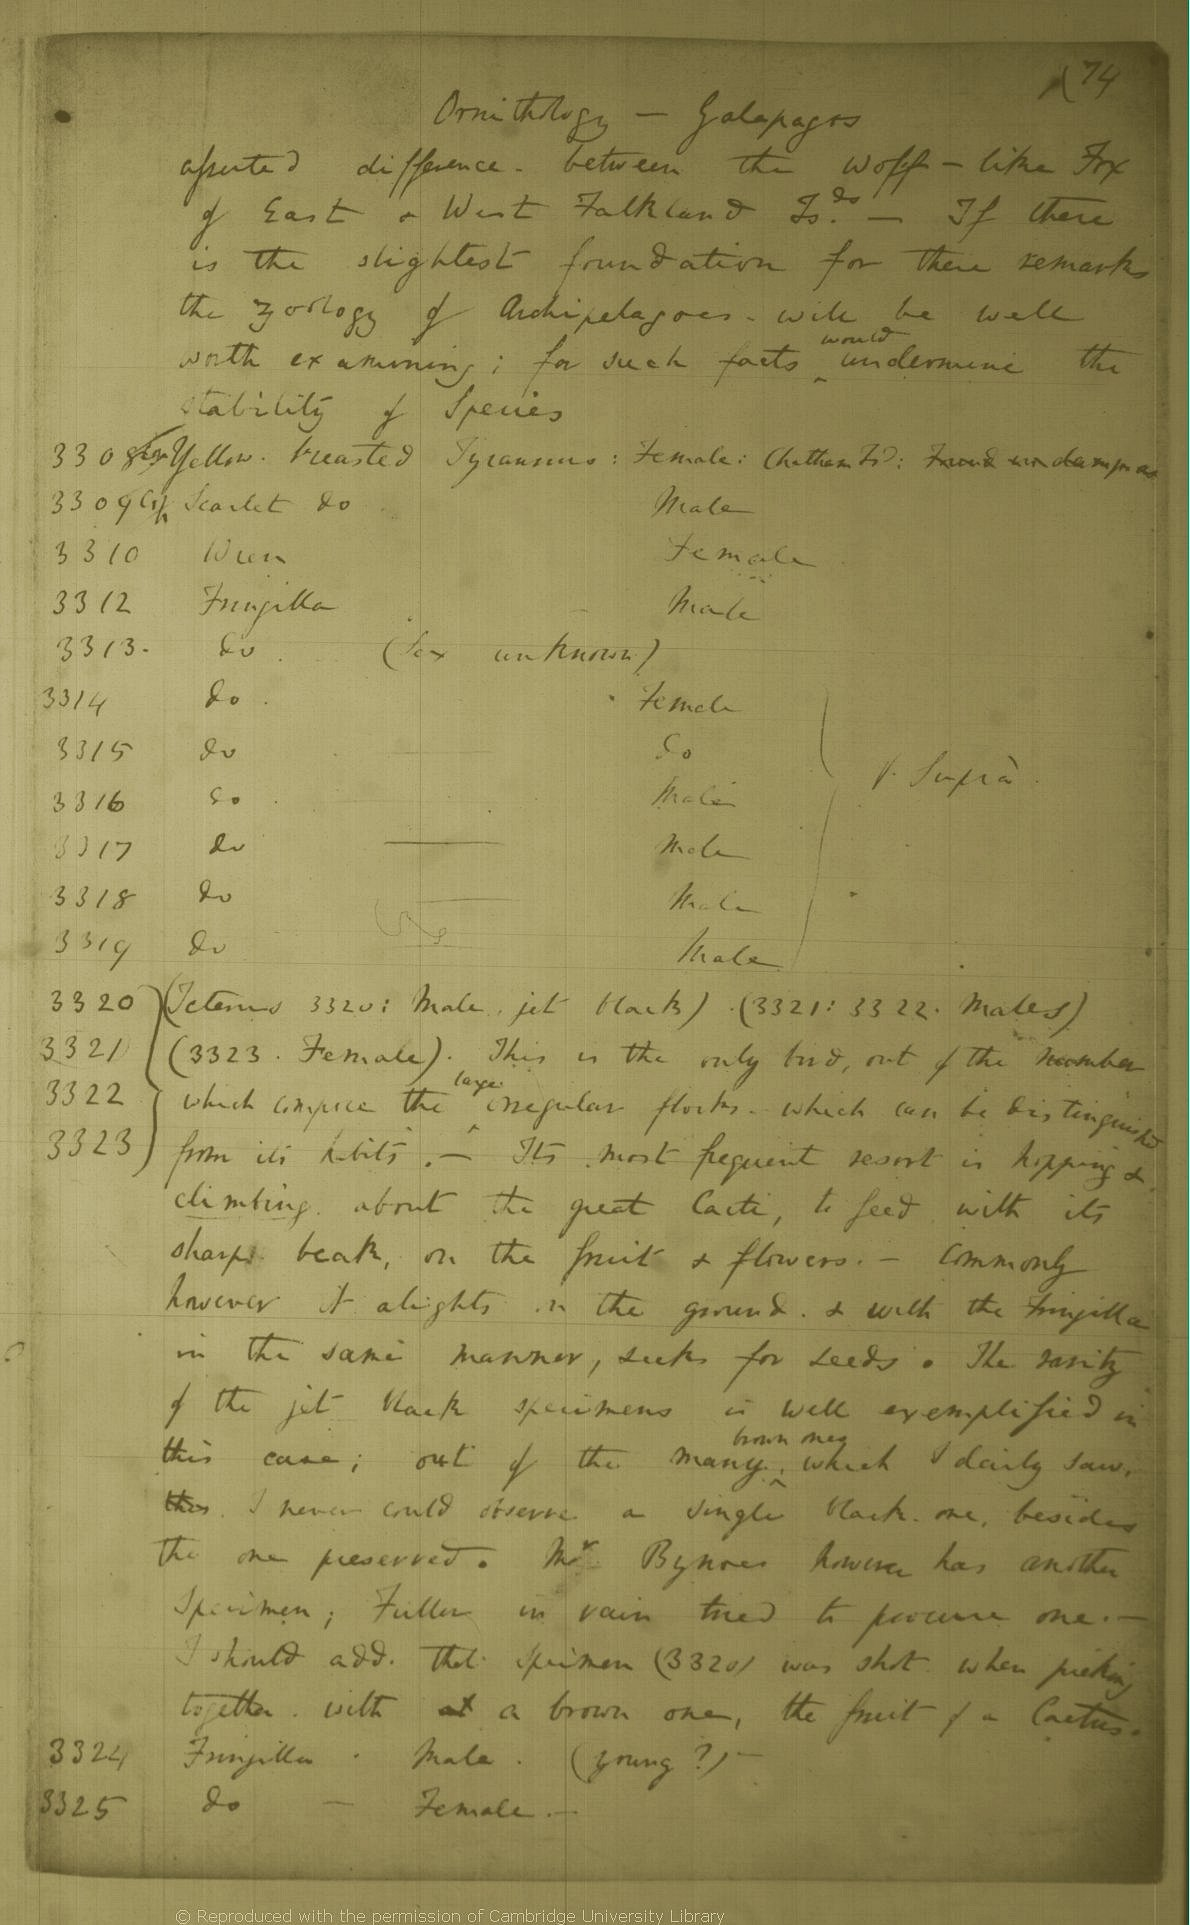 (74
Ornithology — Galapagos
asserted difference. between the wolf-like Fox
of East & West Falkland Isds. — If there
is the slightest foundation for these remarks
the zoology of Archipelagoes. will be well
worth examining; for such facts ^would undermine the
stability of Species
3308 Yellow. breasted Tyrannus: Female: Chatham Isd:
3309 Scarlet do Male
3310 Wren Female
3312 Fringilla Male
3313. do. (Sex unknown)
3314 do. Female
3315 do — do
3316 do. — Male V. Suprà.
3317 do — Male
3318 do — Male
3319 do — Male
3320 (Icterus 3320: Male, jet black) (3321: 3322. Males)
3321 (3323. Female). This is the only bird, out of the number
3322 which compose the ^large irregular flocks. which can be distinguished
3323 from its habits. — Its most frequent resort is hopping &
climbing. about the great Cacti, to feed with its
sharp beak, on the fruit & flowers. — Commonly
however it alights on the ground. & with the Fringilla
in the same manner, seeks for seeds. The rarity
of the jet black specimens is well exemplified in
this case; out of the many ^brown ones, which I daily saw,
this I never could observe a single black. one, besides
the one preserved. Mr Bynoes however has another
specimen; Fuller in vain tried to procure one. —
I should add. that specimen (3320) was shot when picking
together. with at a brown one, the fruit of a Cactus.
3324 Fringilla. Male. (young?) —
3325 do — Female. —
© Reproduced with the permission of Cambridge University Library